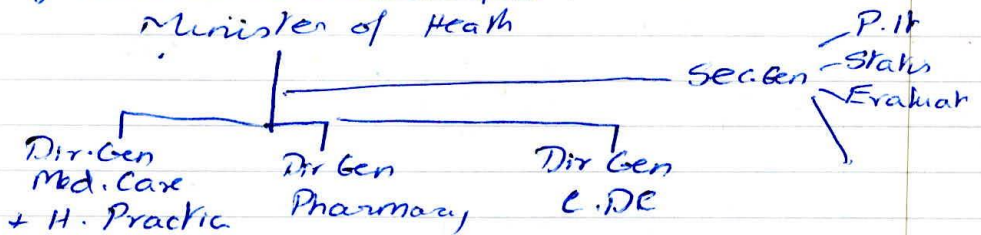 Minister of Heath
Sec.Gen
P.H
Stats
Evaluat
Dir.Gen
Med. Care
+ H. Practic
Dir Gen
Pharmacy
Dir Gen
C.DC